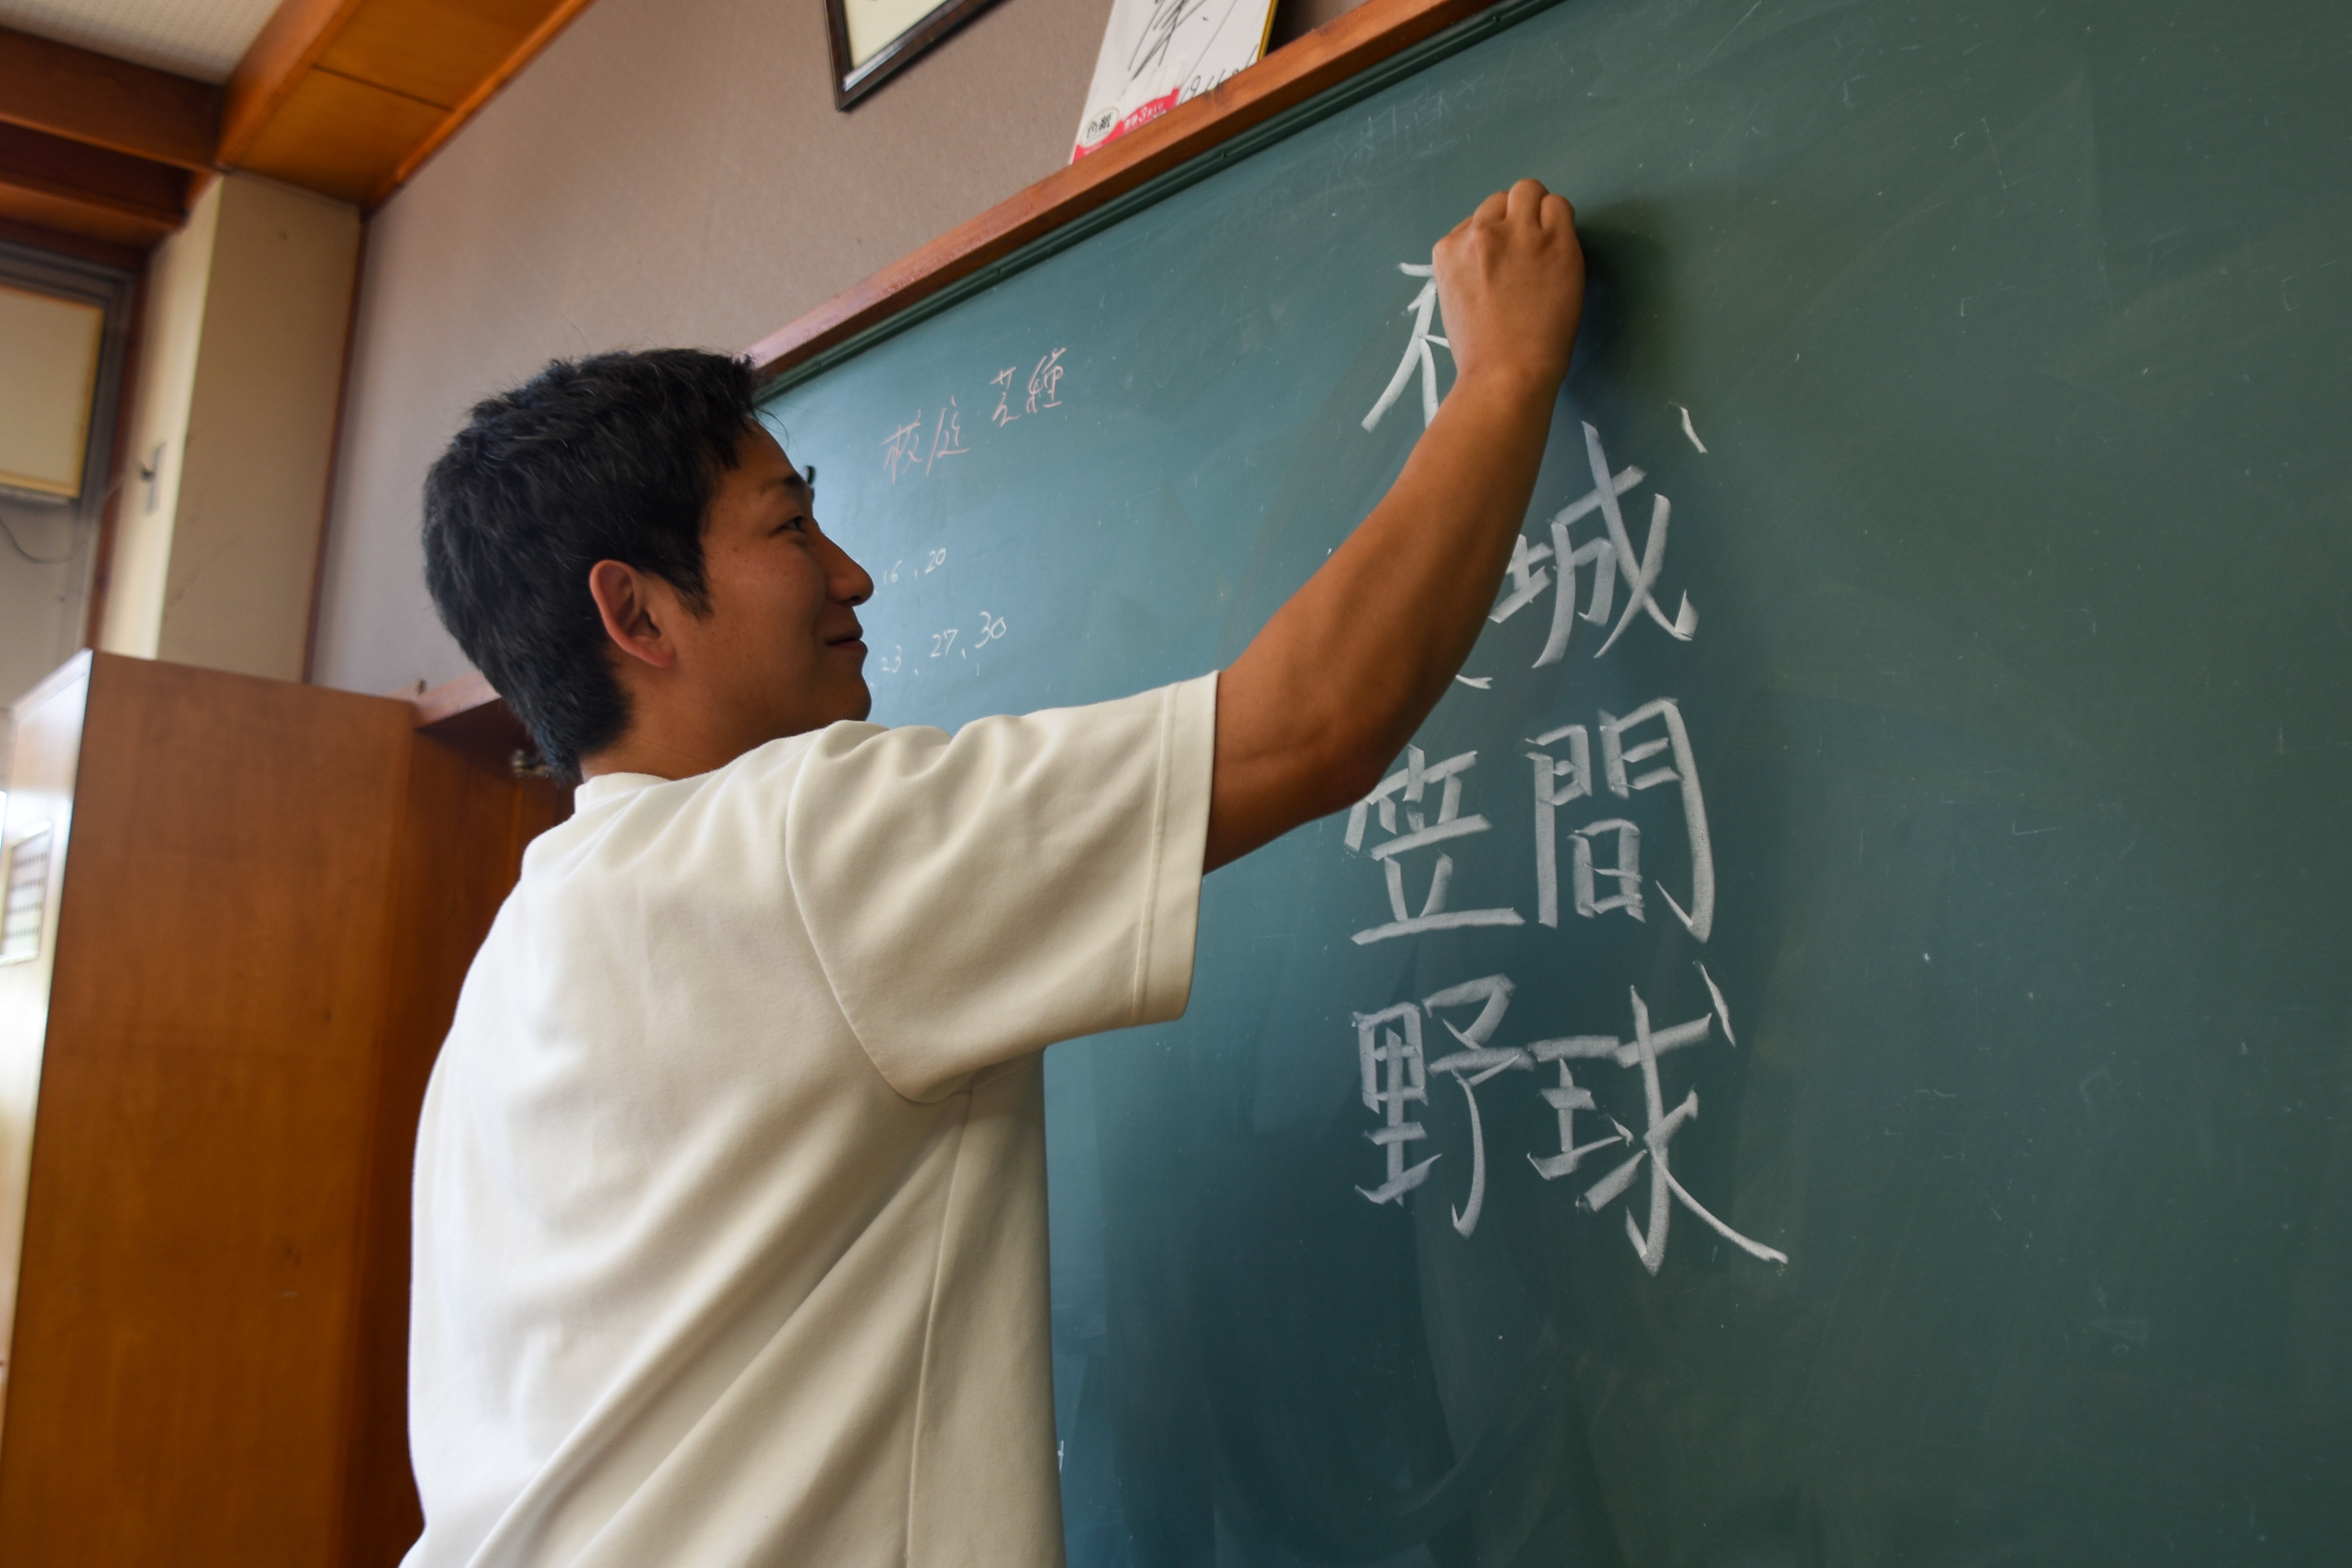 色紙
校庭 芝種
16, 20
23, 27, 30
城
笠間
野球